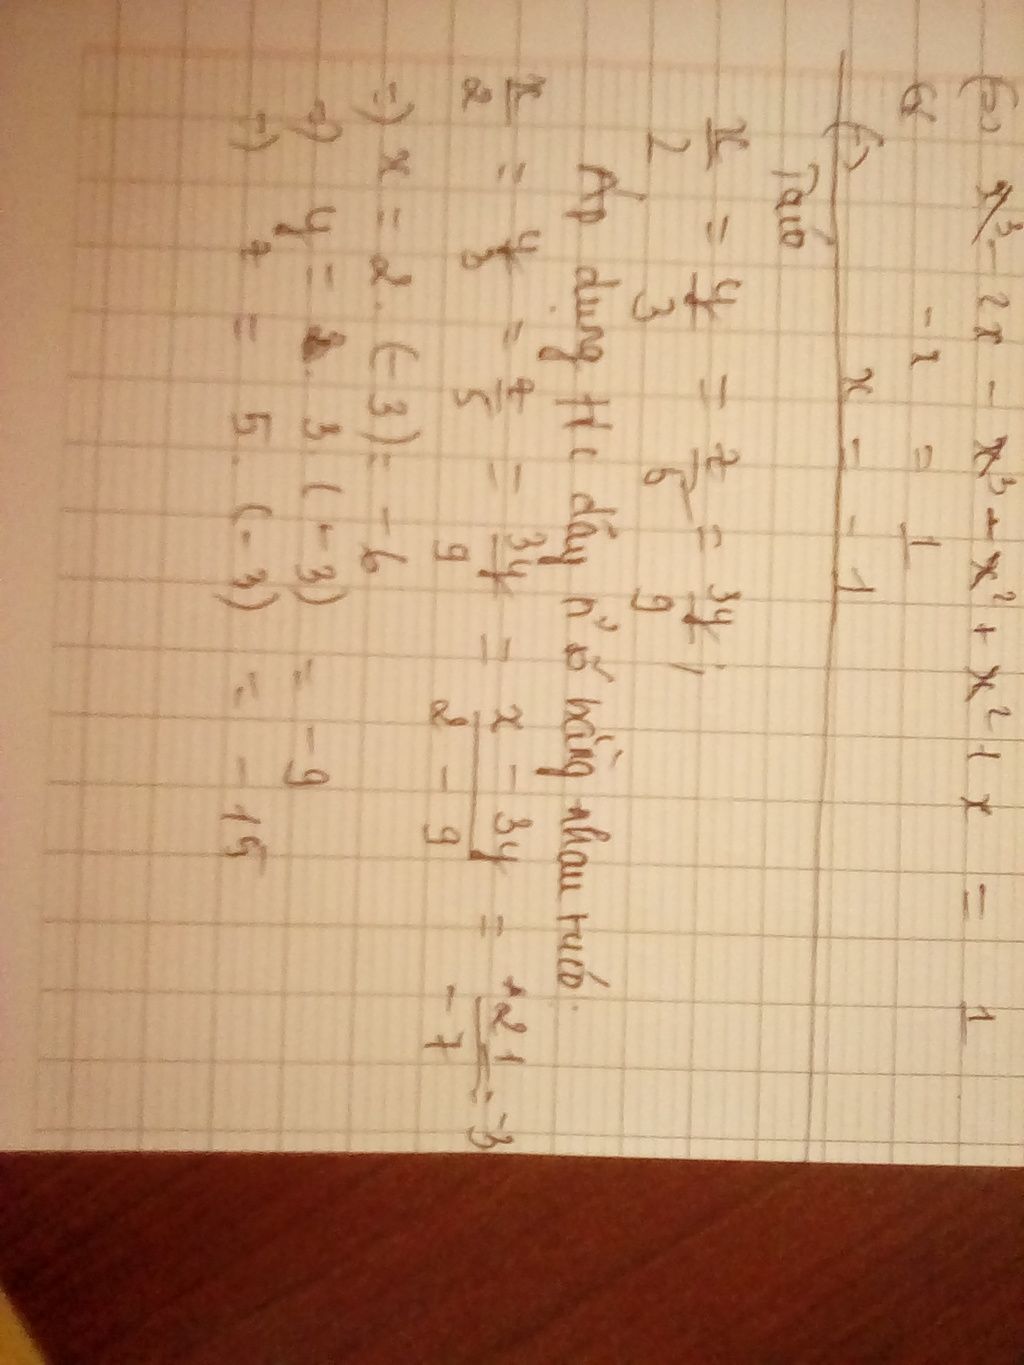 (=) x³ - 2x - x³ - x² + x² + x = 1
(=) -x = 1
(=) x = -1
Ta có
x/2 = y/3 = z/5 = 3y/9 ;
Áp dụng t/c dãy tỉ số bằng nhau ta có.
x/2 = y/3 = z/5 = 3y/9 = x - 3y/2 - 9 = +21/-7 = -3
=) x = 2. (-3) = -6
=) y = 3. (-3) = -9
=) z = 5. (-3) = -15